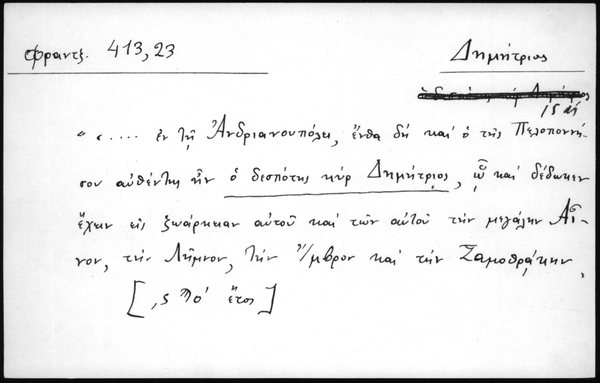 Φραντζ. 413,23
Δημήτριος
15 αἰ
"«.... ἐν τῇ Ἀνδριανουπόλει, ἔνθα δὴ καὶ ὁ τῆς Πελοποννή-
σου αὐθέντης ἦν ὁ δεσπότης κὺρ Δημήτριος, ᾧ καὶ δέδωκεν
ἔχειν εἰς ζωάρκειαν αὐτοῦ καὶ τῶν αὐτοῦ τὴν μεγάλην Αἶ-
νον, τὴν Λῆμνον, τὴν Ἴμβρον καὶ τὴν Σαμοθρᾴκην.
[͵ς ἔτος]